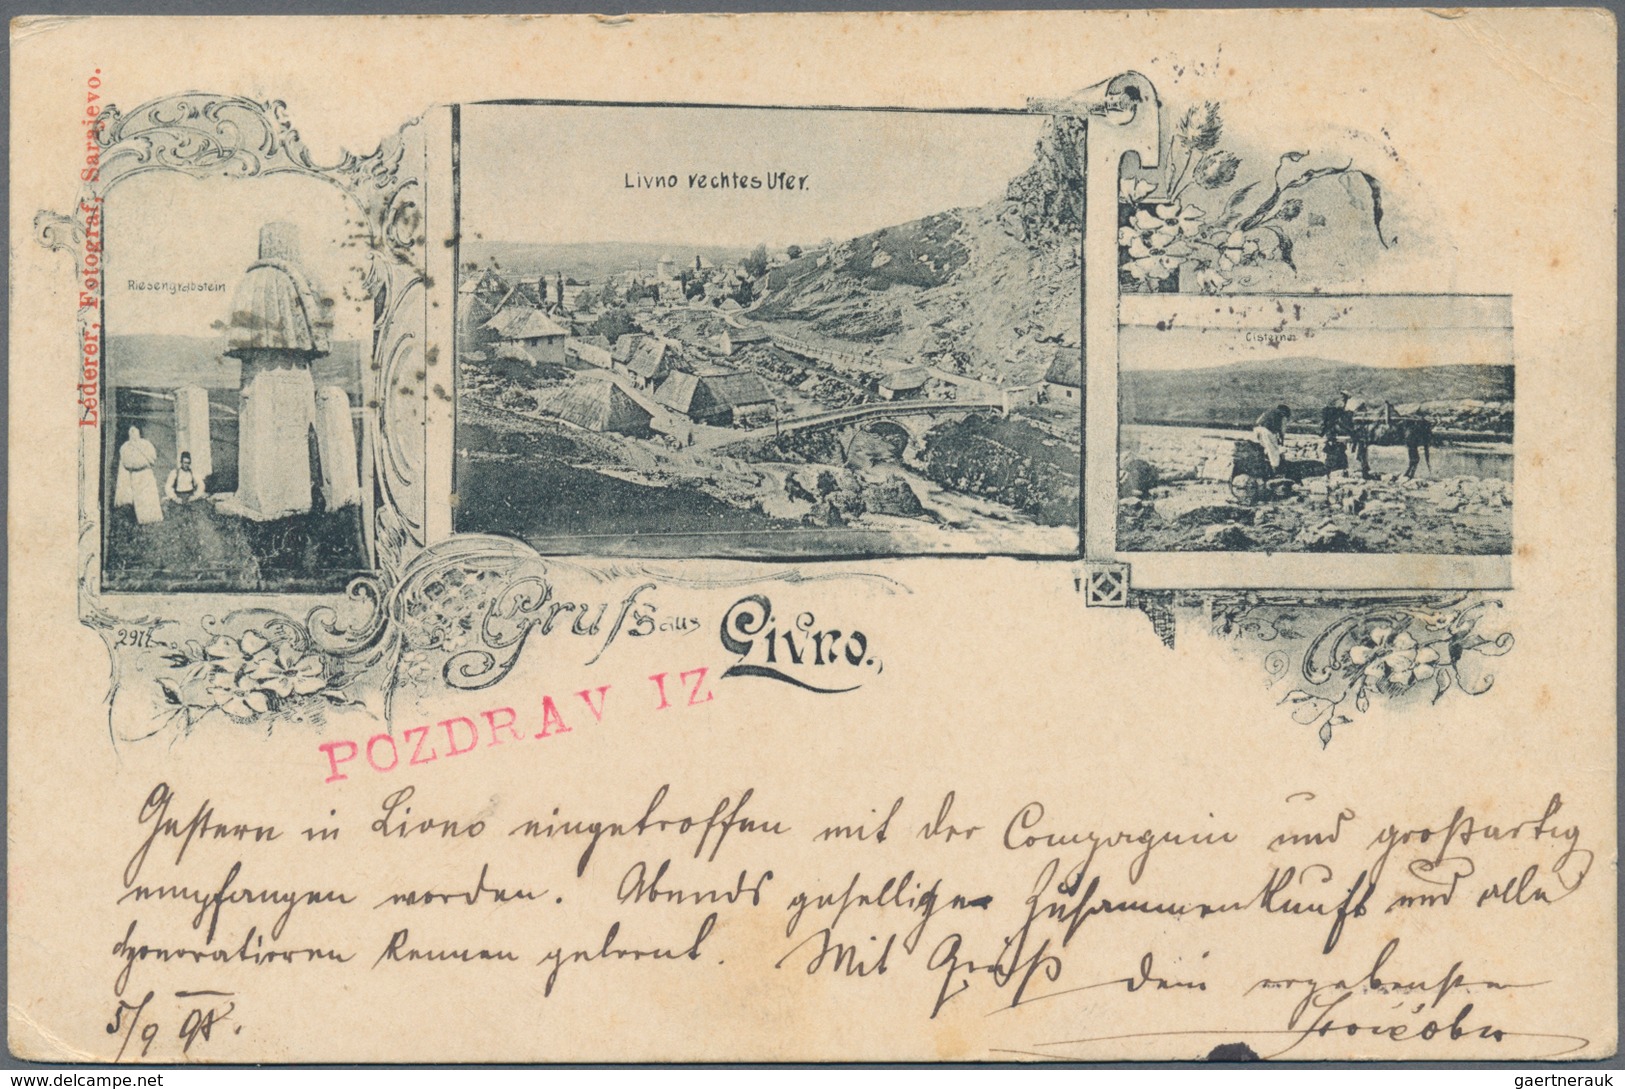 Léderer, Fotograf, Sarajevo.
Riesengrabstein
Livno rechtes Ufer.
Cisterne
2971
Gruss aus Livno.
POZDRAV IZ
Gestern in Livno eingetroffen mit der Compagnie und großartig
empfangen worden. Abends gesellige Zusammenkunft und alle
Honoratioren kennen gelernt. Mit Gruß Dein ergebenster
5/9 98.
gaertnerauk @ www.delcampe.net